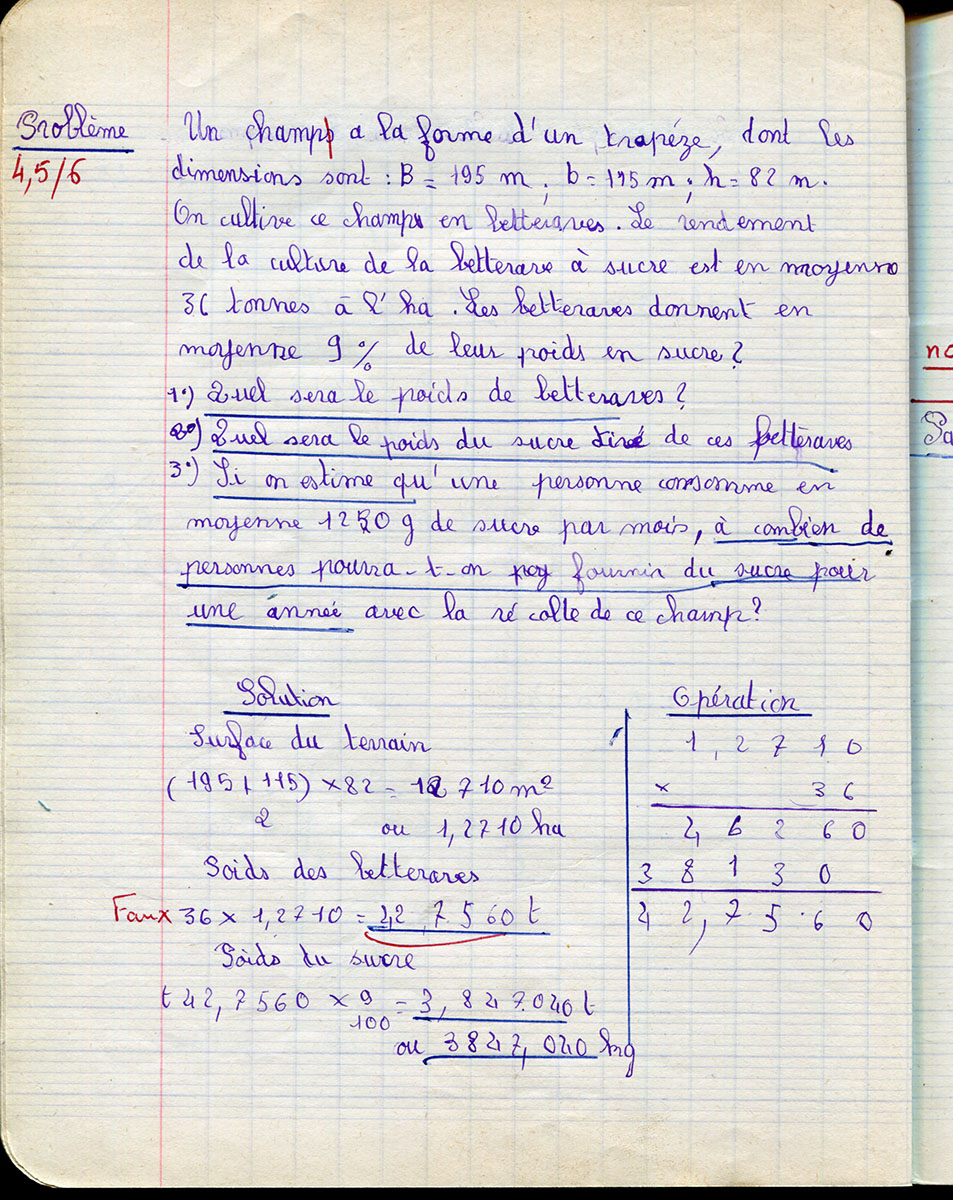 Problème
4,5/6
Un champ a la forme d'un trapéze, dont les
dimensions sont : B = 195 m ; b = 115 m ; h = 82 m.
On cultive ce champs en betteraves. Le rendement
de la culture de la betterave à sucre est en moyenne
36 tonnes à l'ha. Les betteraves donnent en
moyenne 9 % de leur poids en sucre ?
1°) Quel sera le poids de betteraves ?
2°) Quel sera le poids du sucre tiré de ces betteraves
3°) Si on estime qu'une personne consomme en
moyenne 1250 g de sucre par mois, à combien de
personnes pourra-t-on fournir du sucre pour
une année avec la récolte de ce champ ?
Solution
Surface du terrain
(195 + 115) × 82 = 12 710 m²
2
ou 1,2710 ha
Poids des betteraves
Faux 36 × 1,2710 = 42 7560 t
Poids du sucre
t 42,7560 × 9 = 3,847.040 t
100
ou 3847,040 kg
Opération
1,2710
× 36
46260
38130
42,7560
no
Pa